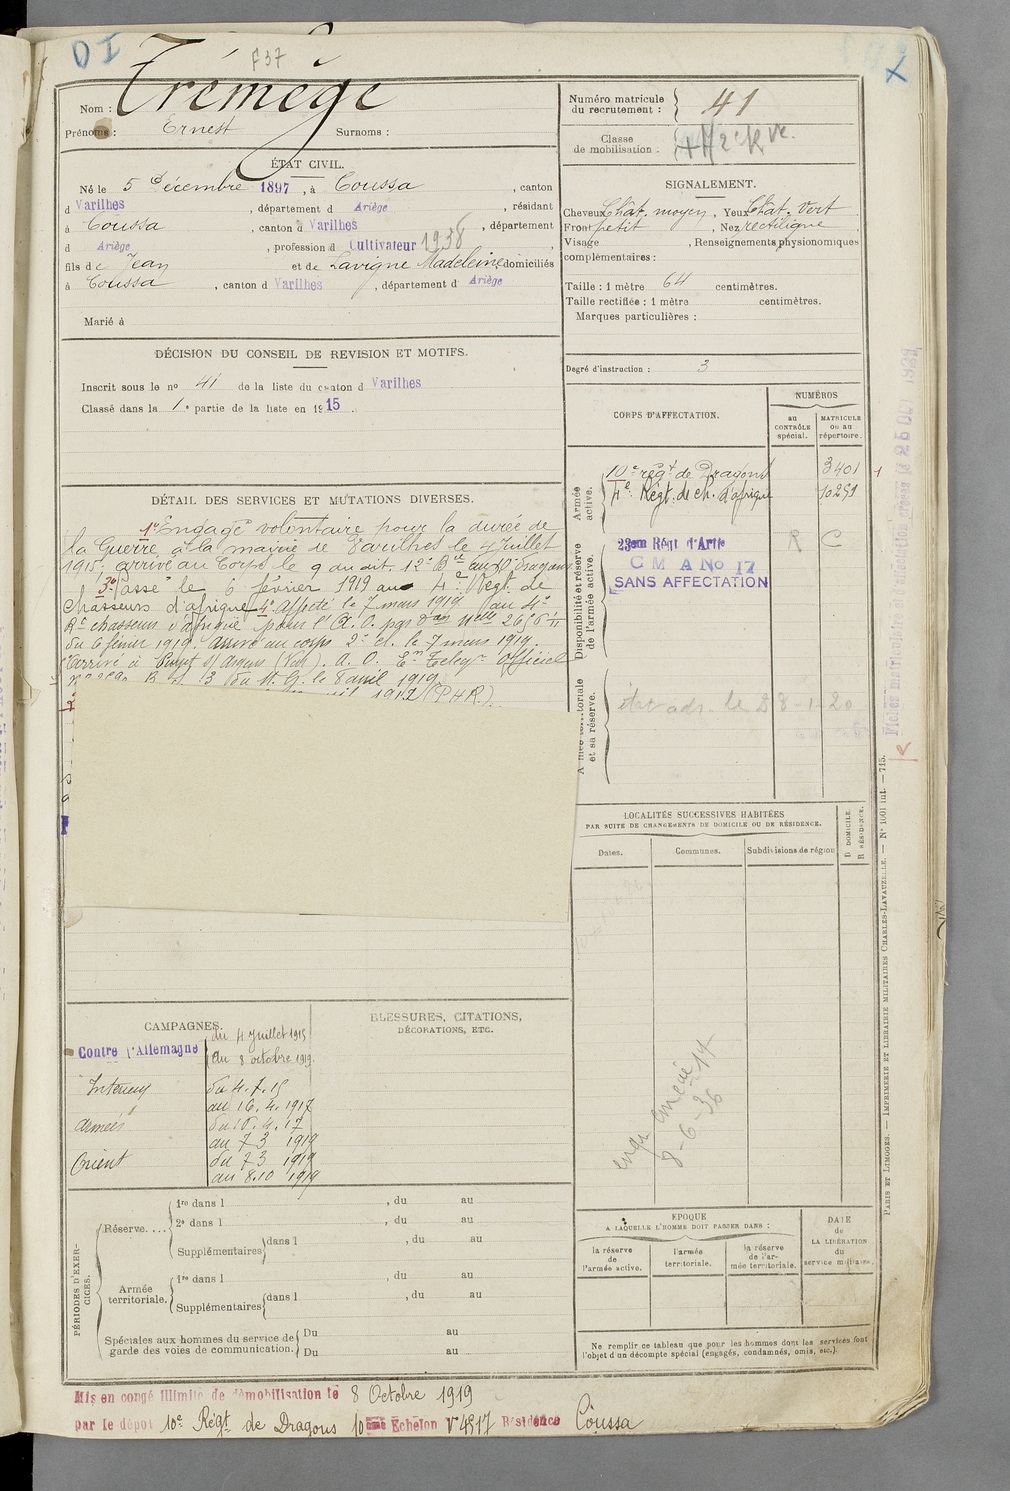 DI
F37
Nom : Trémège
Prénoms : Ernest Surnoms :
ÉTAT CIVIL.
Né le 5 Décembre 1897, à Coussa, canton
d Varilhes, département d Ariège, résidant
à Coussa, canton d Varilhes, département
d Ariège, profession d Cultivateur 1938
fils de Jean et de Lavigne Madeleine, domiciliés
à Coussa, canton d Varilhes, département d Ariège
Marié à
DÉCISION DU CONSEIL DE REVISION ET MOTIFS.
Inscrit sous le n° 41 de la liste du canton d Varilhes
Classé dans la 1e partie de la liste en 1915.
DÉTAIL DES SERVICES ET MUTATIONS DIVERSES.
1° Engagé volontaire pour la durée de
la Guerre, à la mairie de Varilhes le 4 Juillet
1915; arrivé au Corps le 9 du dit. 12e Bie aux Dragons
3° Passé le 6 février 1919 au 4e Regt. de
Chasseurs d'afrique 4° Affecté le 7 mars 1919 au 4e
Rt chasseurs d'afrique pour l'A. O. par
du 6 février 1919. Arrivé au corps 2e cl. le 7 mars 1919.
Arrivé à Puget s/ Argens (Var). A. O. Officiel
B. 3 du M. G. le 8 avril 1919
(P.H.R.)
CAMPAGNES.
Contre l'Allemagne du 4 Juillet 1915
au 8 octobre 1919.
Intérieur du 4.7.15
au 16.4.1917
Armées du 16.4.17
au 7 3 1919
Orient du 7 3 1919
au 8.10 1919
BLESSURES, CITATIONS,
DÉCORATIONS, ETC.
PÉRIODES D'EXERCICES.
Réserve....
1re dans l , du au
2e dans l , du au
Supplémentaires dans l , du au
Armée territoriale.
1re dans l , du au
Supplémentaires dans l , du au
Spéciales aux hommes du service de Du au
garde des voies de communication. Du au
Mis en congé illimité de démobilisation le 8 Octobre 1919
par le dépôt 10e Régt de Dragons 10ème Echelon N° 4517 Résidence Coussa
Numéro matricule
du recrutement : 41
Classe
de mobilisation :
SIGNALEMENT.
Cheveux Chat. moyen, Yeux Chat. vert
Front petit, Nez rectiligne,
Visage , Renseignements physionomiques
complémentaires :
Taille : 1 mètre 64 centimètres.
Taille rectifiée : 1 mètre centimètres.
Marques particulières :
Degré d'instruction : 3
CORPS D'AFFECTATION.
NUMÉROS
au
CONTRÔLE
spécial.
MATRICULE
ou au
répertoire.
Armée
active.
10e régt de Dragons 3401
4e Régt. de ch. d'afrique 10291
Disponibilité et réserve
de l'armée active.
23em Régt d'Artie R C
C M A No 17
SANS AFFECTATION
Armée territoriale
et sa réserve.
état adr. le 28-1-20
LOCALITÉS SUCCESSIVES HABITÉES
PAR SUITE DE CHANGEMENTS DE DOMICILE OU DE RÉSIDENCE.
Dates.
Communes.
Subdivisions de région
D DOMICILE.
R RÉSIDENCE.
8-6-36
ÉPOQUE
A LAQUELLE L'HOMME DOIT PASSER DANS :
la réserve
de
l'armée active.
l'armée
territoriale.
la réserve
de l'ar-
mée territoriale.
DATE
de
LA LIBÉRATION
du
service militaire.
Ne remplir ce tableau que pour les hommes dont les services font
l'objet d'un décompte spécial (engagés, condamnés, omis, etc.).
PARIS ET LIMOGES. — IMPRIMERIE ET LIBRAIRIE MILITAIRES CHARLES-LAVAUZELLE. — N° 1001 int. — 715.
Fiches matriculaire et d'affectation créées le 25 OCT 1929